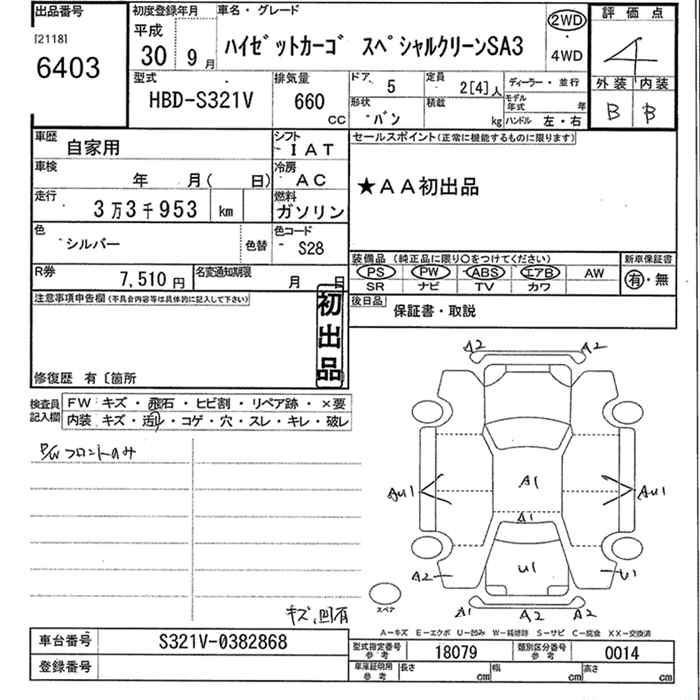 出品番号 初度登録年月 車名・グレード 評価点
[2118] 平成 2WD
6403 30 9月 ハイゼットカーゴ スペシャルクリーンSA3 4WD 4
型式 排気量 ドア 5 定員 2[4]人 ディーラー・並行 外装 内装
HBD-S321V 660 CC 形状 バン 積載 kg モデル年式 年 B B
ハンドル 左・右
車歴 自家用 シフト IAT セールスポイント(正常に機能するものに限ります)
車検 年 月( 日) 冷房 AC ★AA初出品
走行 3万3千953 km 燃料 ガソリン
色 シルバー 色替 色コード S28 装備品 (純正品に限り○をつけてください) 新車保証書
PS PW ABS エアB AW 有・無
R券 7,510円 名変通知期限 月 日 SR ナビ TV カワ
注意事項申告欄(不具合内容等は具体的に記入して下さい) 後日品 保証書・取説
初出品
修復歴 有〔箇所
検査員記入欄 FW キズ・飛石・ヒビ割・リペア跡・×要
内装 キズ・汚レ・コゲ・穴・スレ・キレ・破レ
P/Wフロントのみ
A2 A2
AU1 A1 AU1
A1
A2 U1 U1
スペア A1 A2 A2
キズ、凹有
A-キズ E-エクボ U-凹み W-純修跡 S-サビ C-腐食 XX-交換済
車台番号 S321V-0382868 型式指定番号 参考 18079 類別区分番号 参考 0014
登録番号 車庫証明用 参考 長さ cm 幅 cm 高さ cm